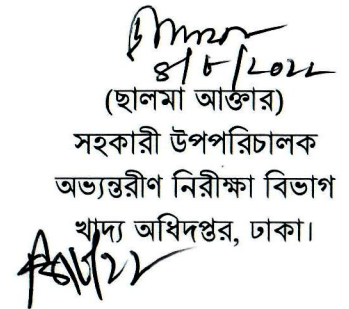 ৪/৮/২০২২
(ছালমা আক্তার)
সহকারী উপপরিচালক
অভ্যন্তরীণ নিরীক্ষা বিভাগ
খাদ্য অধিদপ্তর, ঢাকা।